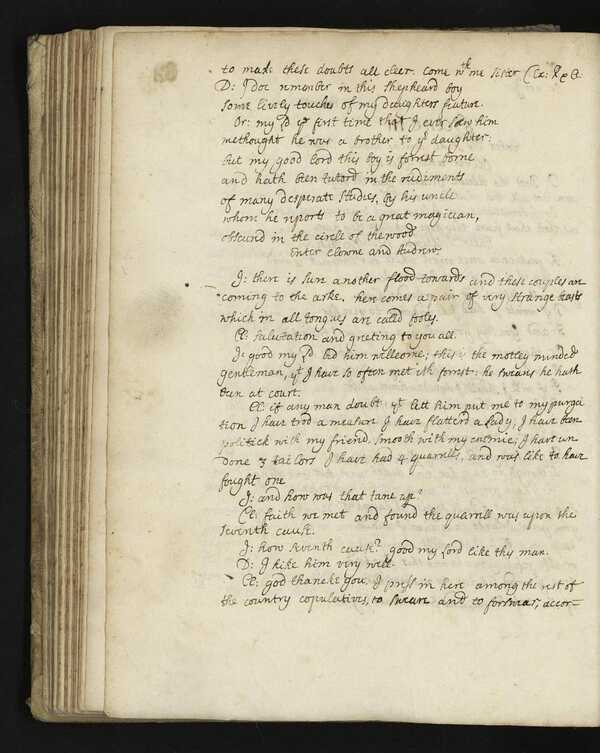 to make these doubts all cleer. Come wth me sister (Ex: R & O.
D: I doe remember in this shepheard boy
some lively touches of my daughters feature.
Or: my Ld ye first time that I ever saw him
methought he was a brother to yr daughter:
but my good lord this boy is forrest borne
and hath been tutord in the rudiments
of many desperate studies, by his uncle
whom he reports to be a great magician,
obscurd in the circle of the wood.
Enter Clowne and Audrew
J: there is sure another flood towards and these couples are
coming to the arke. here comes a pair of very strange beasts
which in all tongues are called fooles.
Cl: salutation and greeting to you all.
J: good my Ld bid him wellcome; this is the motley minded
gentleman, yt I have so often met ith forrest: he sweares he hath
been at court.
Cl: if any man doubt yt lett him put me to my purga
tion I have trod a measure I have flatterd a Lady, I have been
politick with my friend, smooth with my enemie; I have un
done 3 tailors I have had 4 quarrells, and was like to have
fought one
J: and how was that tane up?
Cl: faith we met and found the quarrell was upon the
seventh cause.
J: how seventh cause? good my lord like this man.
D: I like him very well.
Cl: god thanke you, I press in here among the rest of
the country copulatives, to sweare and to forswear, accor-